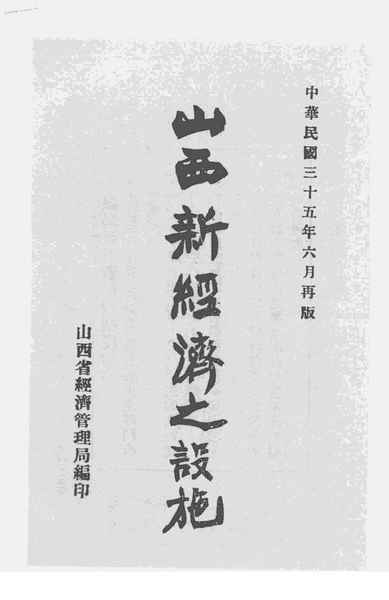 中華民國三十五年六月再版
山西新經濟之設施
山西省經濟管理局編印